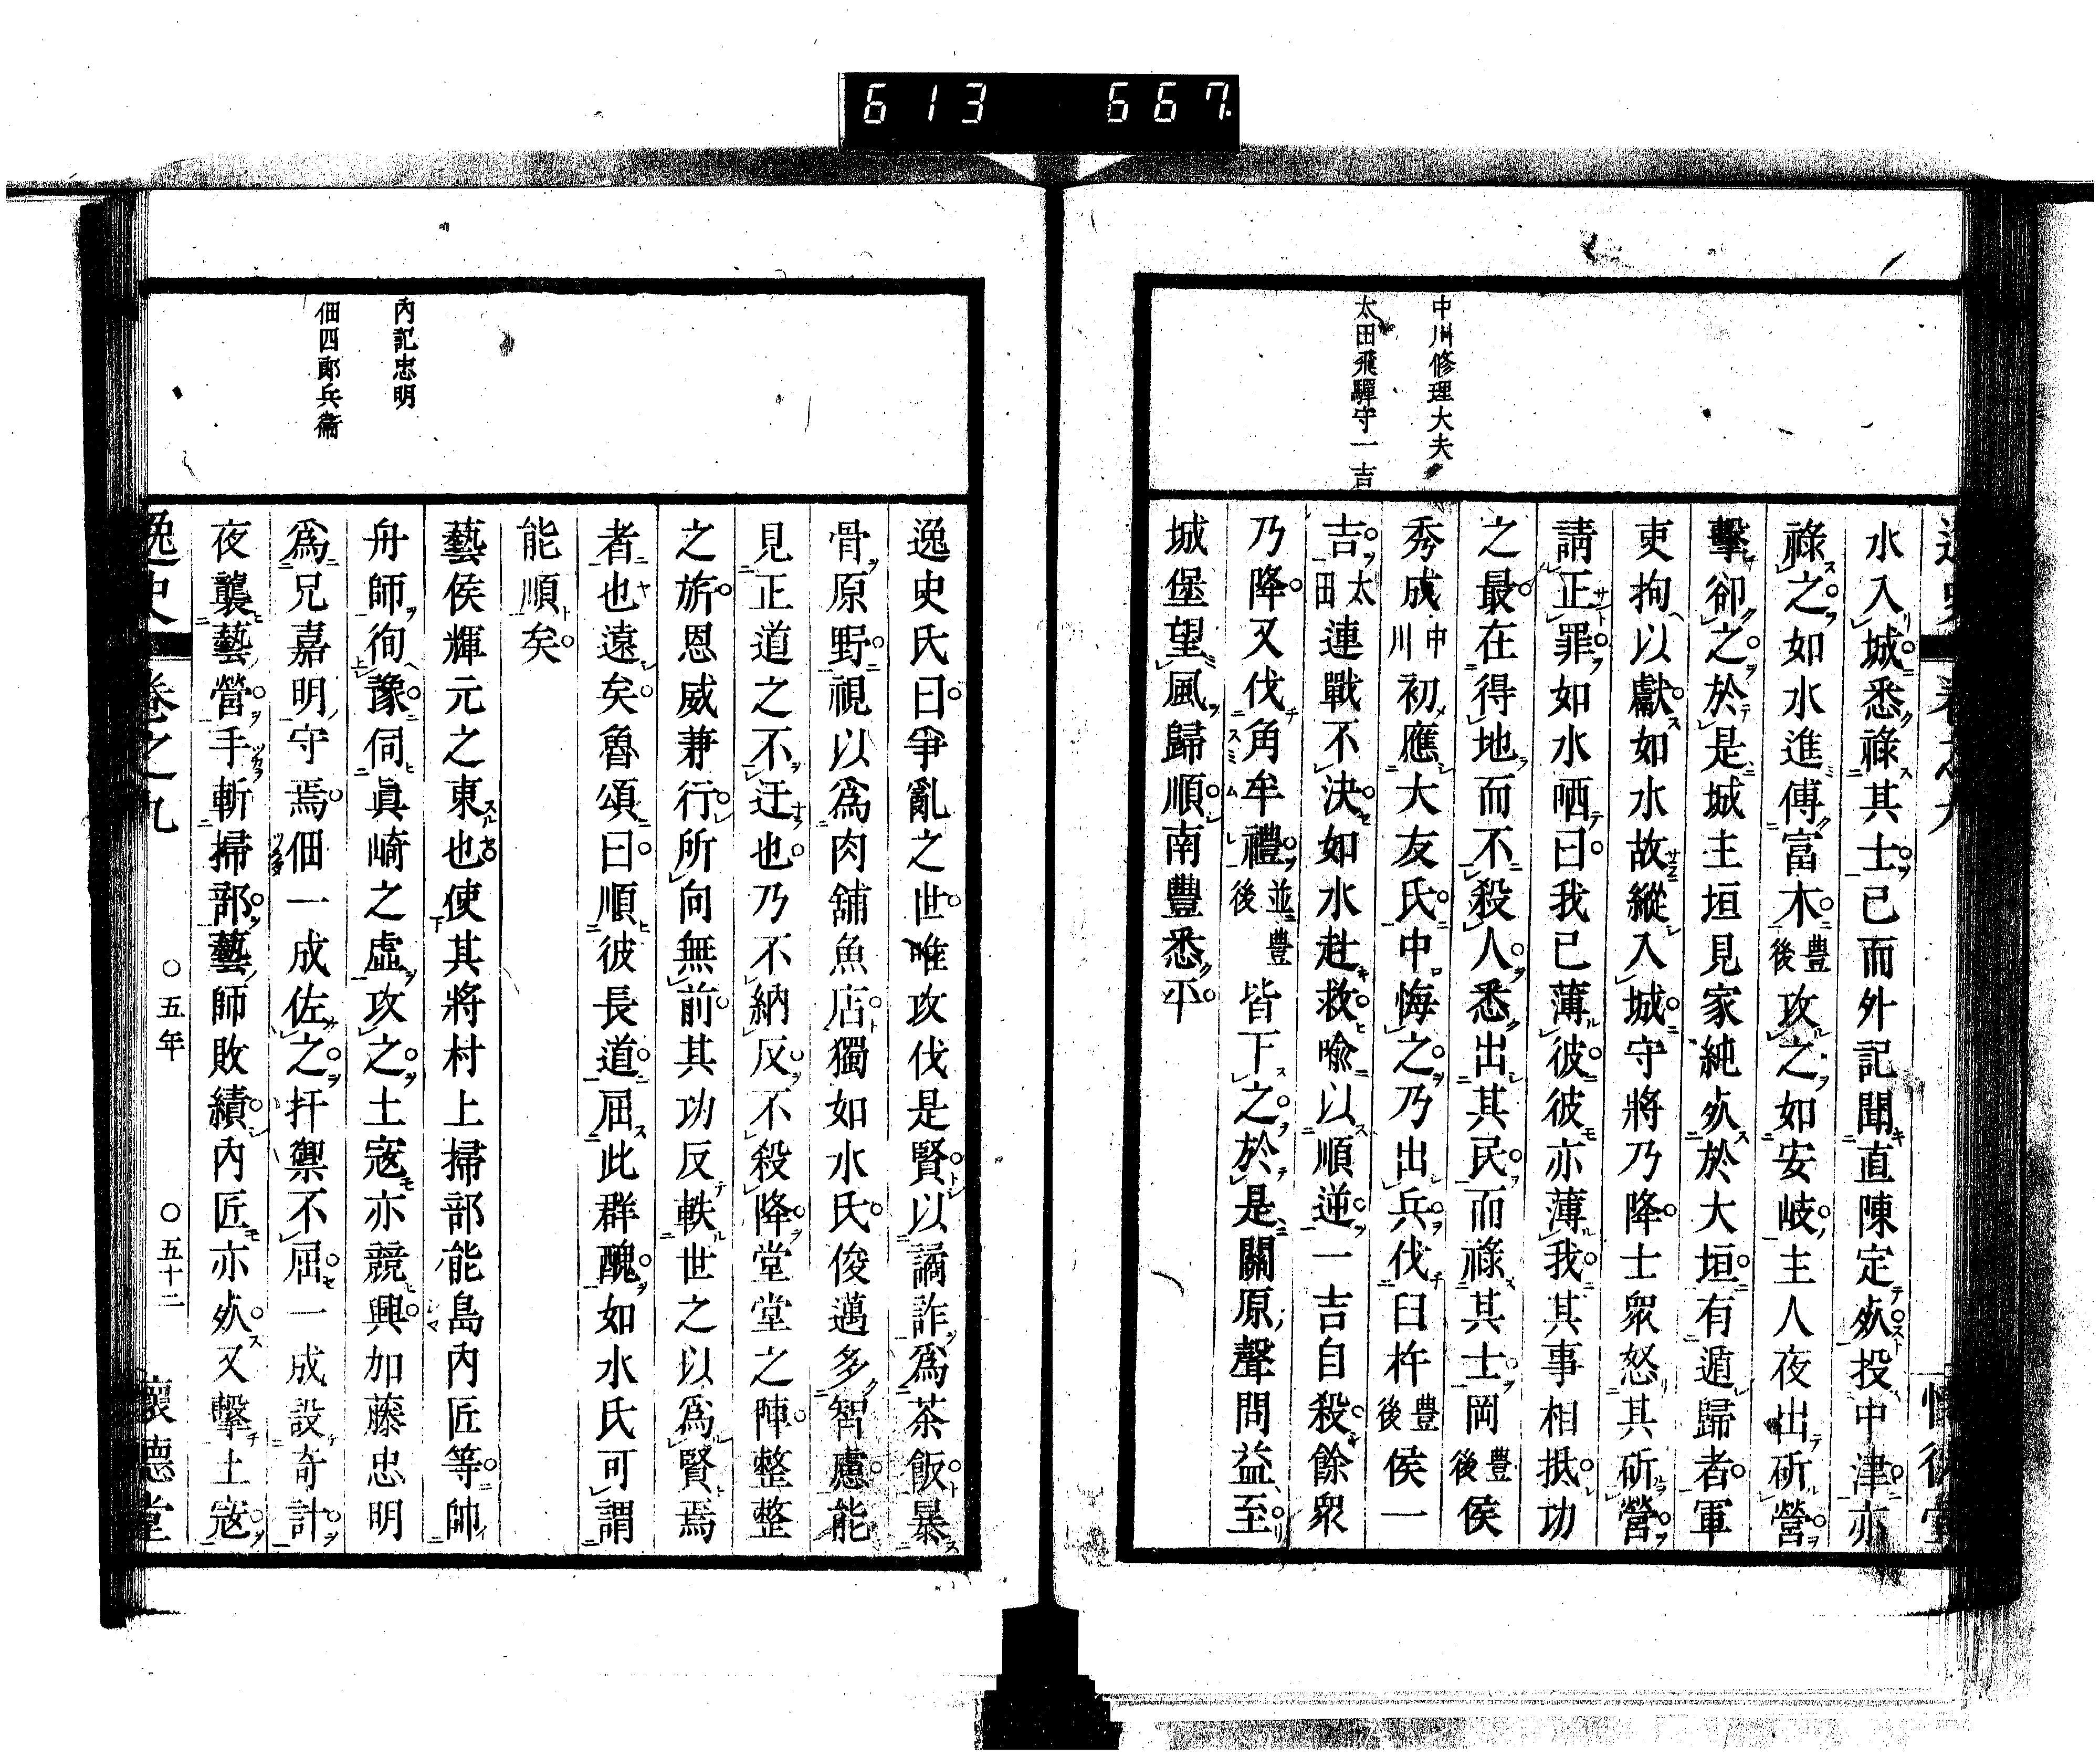 613 667
中川修理大夫
太田飛驒守一吉
水入城悉祿其士已而外記聞直陳定𠩄投中津亦
祿之如水進傅富木豊後攻之如安岐主人夜出斫營
擊卻之於是城主垣見家純𠩄於大垣有遁歸者軍
吏拘以獻如水故縱入城守將乃降士衆怒其斫營
請正罪如水哂曰我已薄彼彼亦薄我其事相抵功
之最在得地而不殺人悉出其民而祿其士岡豊後侯
秀成中川初應大友氏中悔之乃出兵伐臼杵豊後侯一
吉太田連戰不決如水赴救喩以順逆一吉自殺餘衆
乃降又伐角牟禮並豊後皆下之於是關原聲問益至
城堡望風歸順南豐悉平
內記忠明
佃四郞兵衞
逸史氏曰爭亂之世唯攻伐是賢以譎詐爲茶飯暴
骨原野視以爲肉舖魚店獨如水氏俊邁多智慮能
見正道之不迂也乃不納反不殺降堂堂之陣整整
之旂恩威兼行所向無前其功反軼世之以爲賢焉
者也遠矣魯頌曰順彼長道屈此群醜如水氏可謂
能順矣
藝侯輝元之東也使其將村上掃部能島內匠等帥
舟師徇豫伺眞崎之虛攻之土寇亦競興加藤忠明
爲兄嘉明守焉佃一成佐之扞禦不屈一成設奇計
夜襲藝營手斬掃部藝師敗績內匠亦𠩄又擊土寇
逸史 卷之九 ○五年 ○五十二 懷德堂